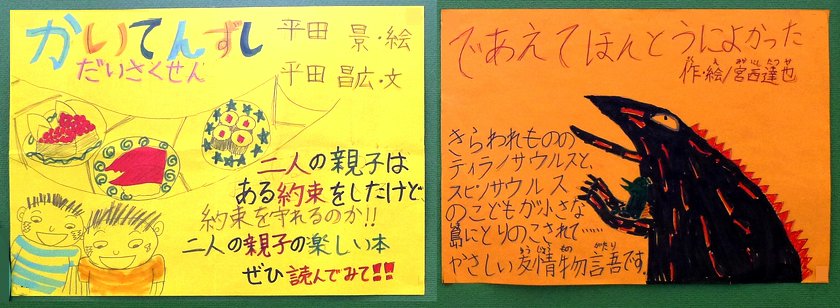 かいてんずし
だいさくせん
平田 景・絵
平田 昌広・文
二人の親子は
ある約束をしたけど、
約束を守れるのか!!
二人の親子の楽しい本
ぜひ読んでみて!!
であえてほんとうによかった
作・絵/宮西達也
きらわれものの
ティラノサウルスと、
スピノサウルス
のこどもが小さな
島にとりのこされて……
やさしい友情物語です。